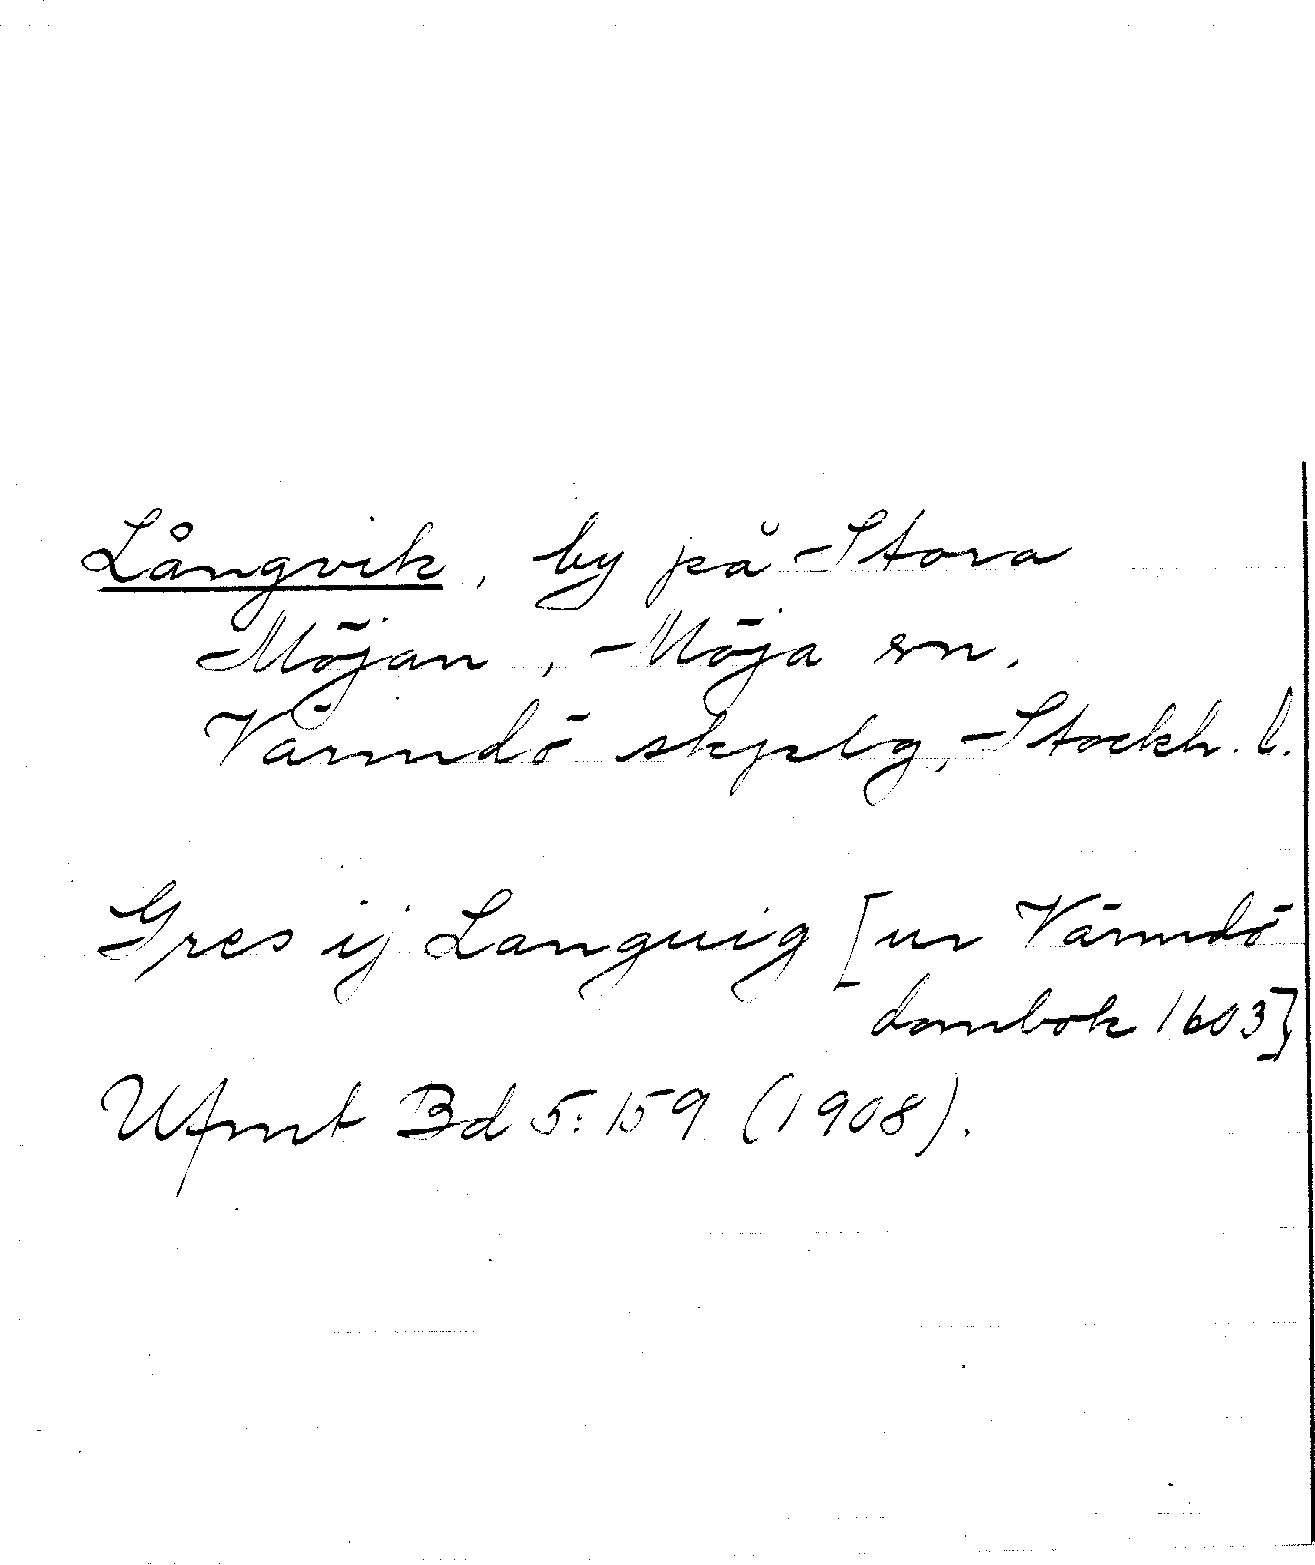 Långvik, by på Stora
Möjan, Möja sn.
Värmdö skplg, Stockh. l.
Gres ij Languig [ur Värmdö
dombok 1603]
Ufmt Bd 5:159 (1908).